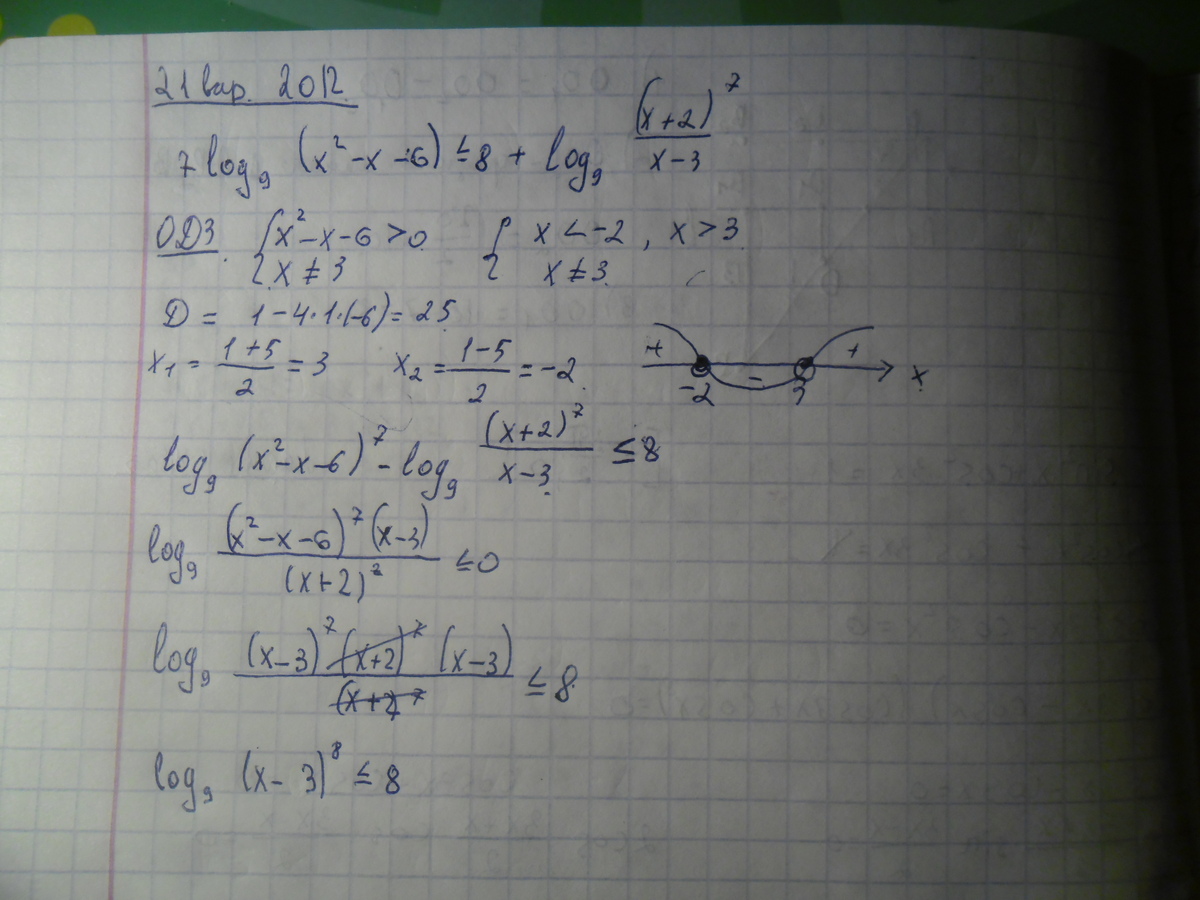 21 вар. 2012.
7 log₉ (x² - x - 6) ≤ 8 + log₉ (x+2)⁷/(x-3)
ОДЗ. { x² - x - 6 > 0 { x < -2, x > 3
x ≠ 3 x ≠ 3
D = 1 - 4·1·(-6) = 25
x₁ = (1+5)/2 = 3 x₂ = (1-5)/2 = -2 + -2 - 3 + x
log₉ (x² - x - 6)⁷ - log₉ (x+2)⁷/(x-3) ≤ 8
log₉ (x² - x - 6)⁷(x-3)/(x+2)⁷ ≤ 0
log₉ (x-3)⁷(x+2)⁷(x-3)/(x+2)⁷ ≤ 8
log₉ (x - 3)⁸ ≤ 8